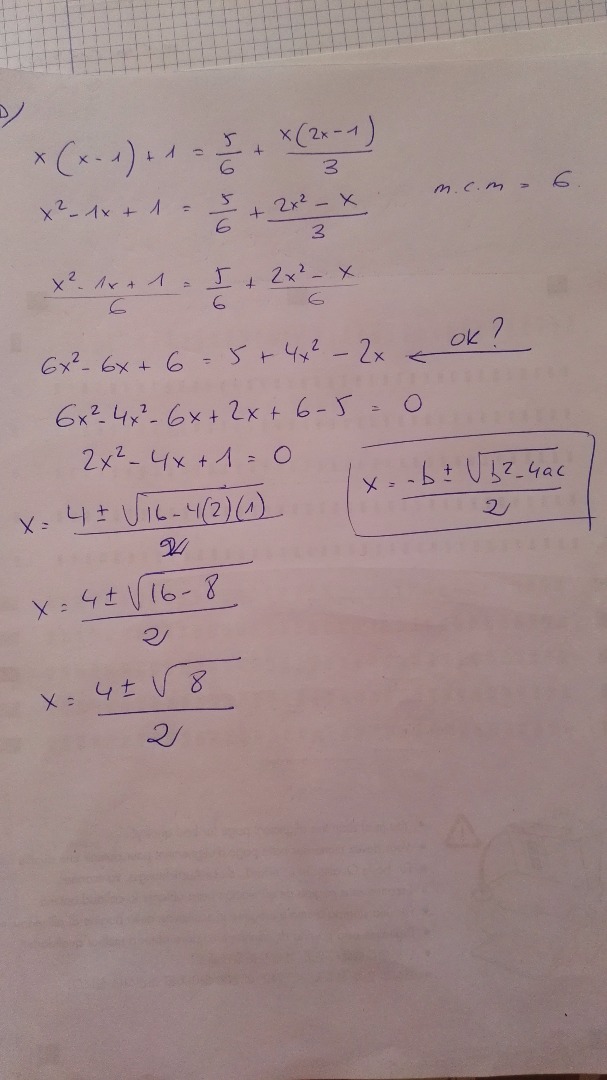 D)
x(x-1)+1 = 5/6 + x(2x-1)/3
x² - 1x + 1 = 5/6 + 2x² - x/3 m.c.m = 6.
x² - 1x + 1/6 = 5/6 + 2x² - x/6
6x² - 6x + 6 = 5 + 4x² - 2x ← ok?
6x² - 4x² - 6x + 2x + 6 - 5 = 0
2x² - 4x + 1 = 0
x = -b ± √b² - 4ac/2
x = 4 ± √16 - 4(2)(1)/2
x = 4 ± √16 - 8/2
x = 4 ± √8/2